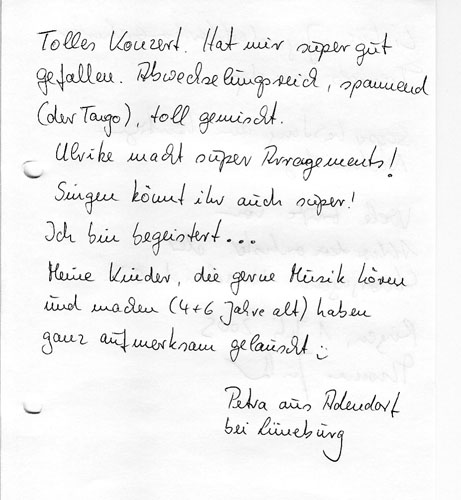 Tolles Konzert. Hat mir super gut
gefallen. Abwechselungsreich, spannend
(der Tango), toll gemischt.
Ulrike macht super Arragements!
Singen könnt ihr auch super!
Ich bin begeistert...
Meine Kinder, die gerne Musik hören
und machen (4+6 Jahre alt) haben
ganz aufmerksam gelauscht :)
Petra aus Adendorf
bei Lüneburg